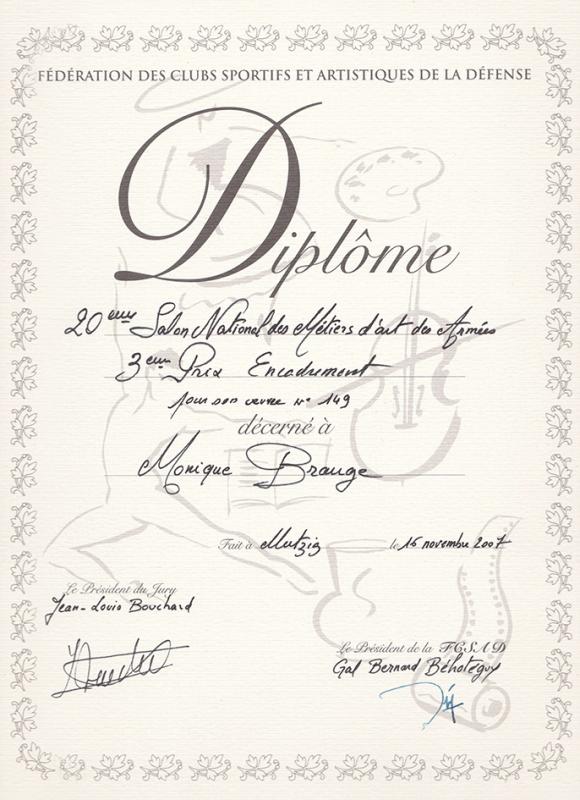 FÉDÉRATION DES CLUBS SPORTIFS ET ARTISTIQUES DE LA DÉFENSE
Diplôme
20 eme Salon National des Métiers d'art des Armées
3 eme Prix Encadrement
pour son œuvre n° 149
décerné à
Monique Brauge
Fait à Mutzig le 16 novembre 2007
Le Président du Jury
Jean-Louis Bouchard
Le Président de la FCSAD
Gal Bernard Béhoteguy